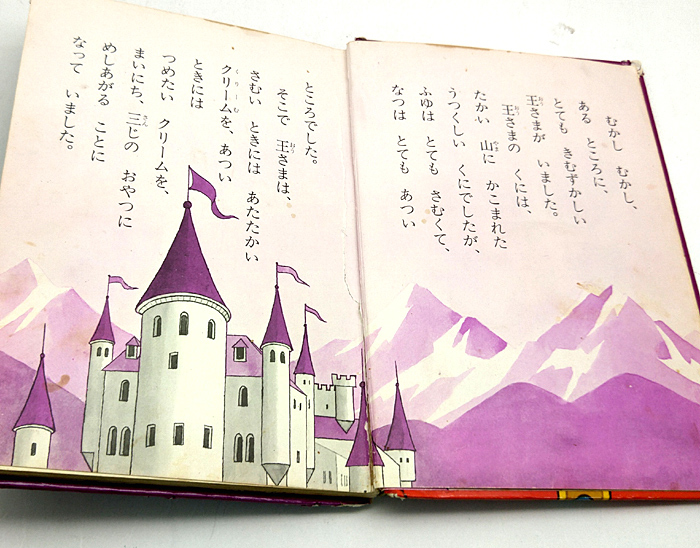 むかし むかし、
ある ところに、
とても きむずかしい
王さまが いました。
王さまの くには、
たかい 山に かこまれた
うつくしい くにでしたが、
ふゆは とても さむくて、
なつは とても あつい
ところでした。
そこで 王さまは、
さむい ときには あたたかい
クリームを、あつい
ときには
つめたい クリームを、
まいにち、三じの おやつに
めしあがる ことに
なって いました。